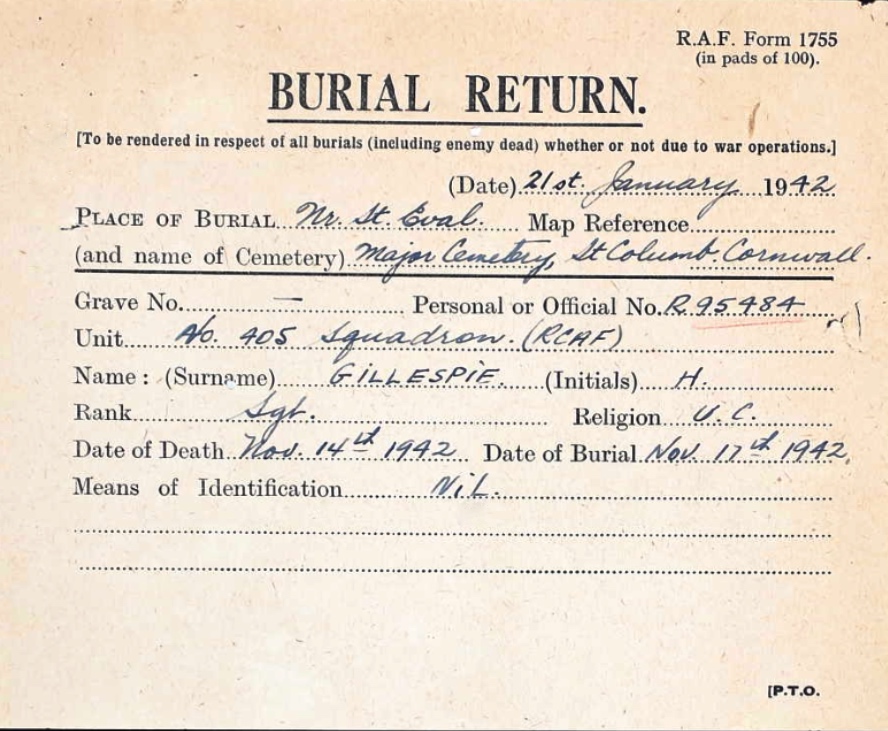 R.A.F. Form 1755
(in pads of 100).
BURIAL RETURN.
[To be rendered in respect of all burials (including enemy dead) whether or not due to war operations.]
(Date) 21st. January 1942
PLACE OF BURIAL Nr. St. Eval. Map Reference
(and name of Cemetery) Major Cemetery, St Columb. Cornwall.
Grave No. — Personal or Official No. R 95484
Unit No. 405 Squadron. (RCAF)
Name : (Surname) GILLESPIE. (Initials) H.
Rank Sgt. Religion U.C.
Date of Death Nov. 14th 1942 Date of Burial Nov. 17th 1942,
Means of Identification Nil.
[P.T.O.